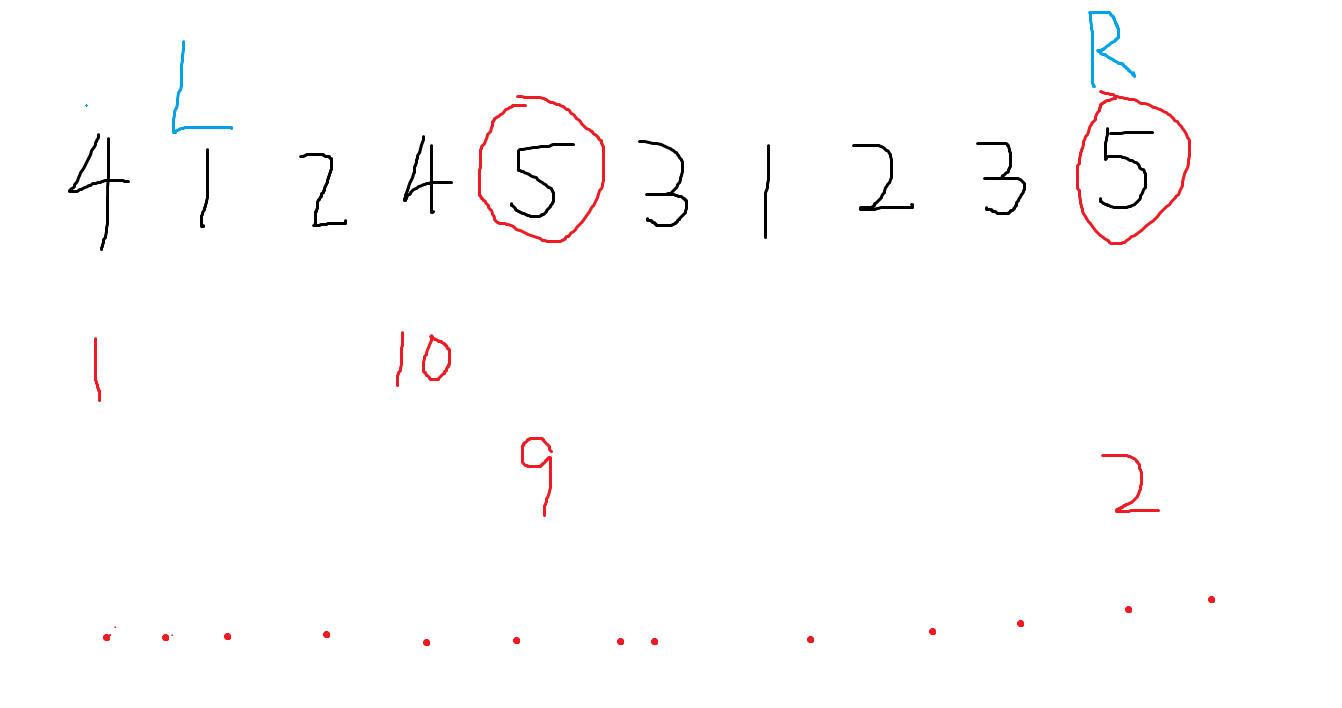 L R
4 1 2 4 5 3 1 2 3 5
1 10
9 2